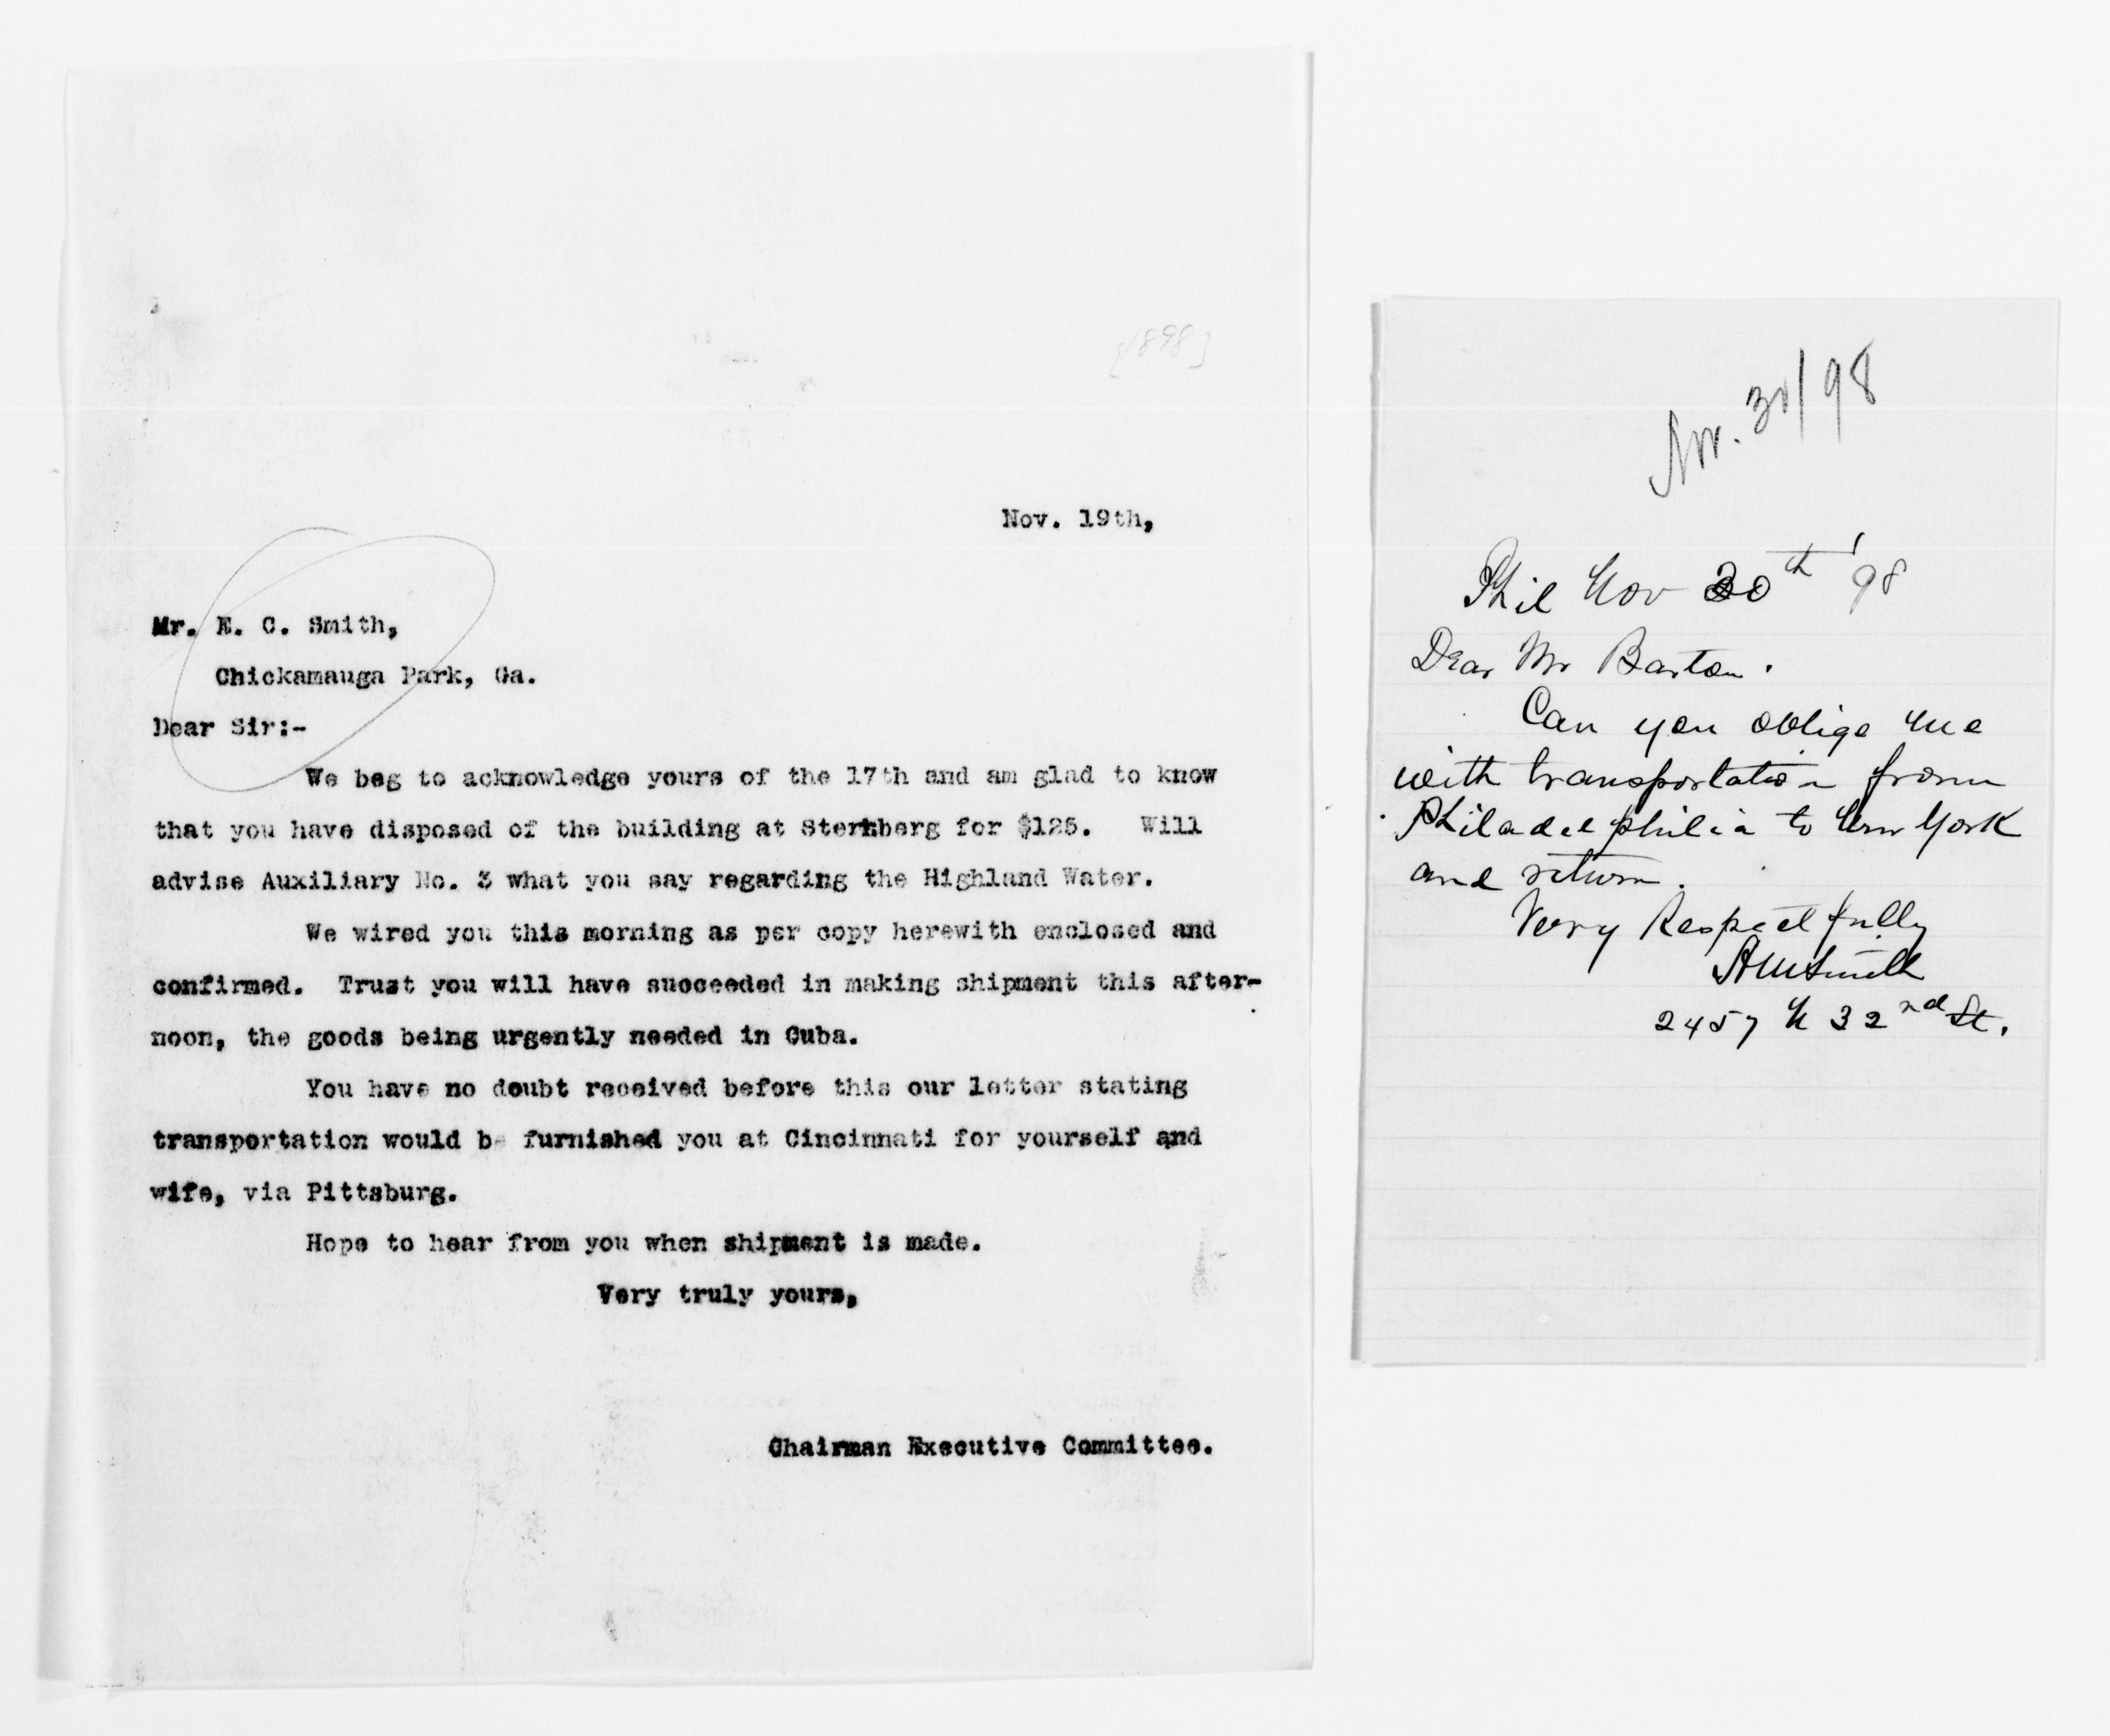 [1898]
Nov. 19th,
Mr. E. C. Smith,
Chickamauga Park, Ga.
Dear Sir:-
We beg to acknowledge yours of the 17th and am glad to know
that you have disposed of the building at Sternberg for $125. Will
advise Auxiliary No. 3 what you say regarding the Highland Water.
We wired you this morning as per copy herewith enclosed and
confirmed. Trust you will have succeeded in making shipment this after-
noon, the goods being urgently needed in Cuba.
You have no doubt received before this our letter stating
transportation would be furnished you at Cincinnati for yourself and
wife, via Pittsburg.
Hope to hear from you when shipment is made.
Very truly yours,
Chairman Executive Committee.
Nov. 30/98
Phil Nov 30th '98
Dear Mr Barton.
Can you oblige me
with transportation from
Philadelphia to New York
and return.
Very Respectfully
Smith
2457 N 32nd St.